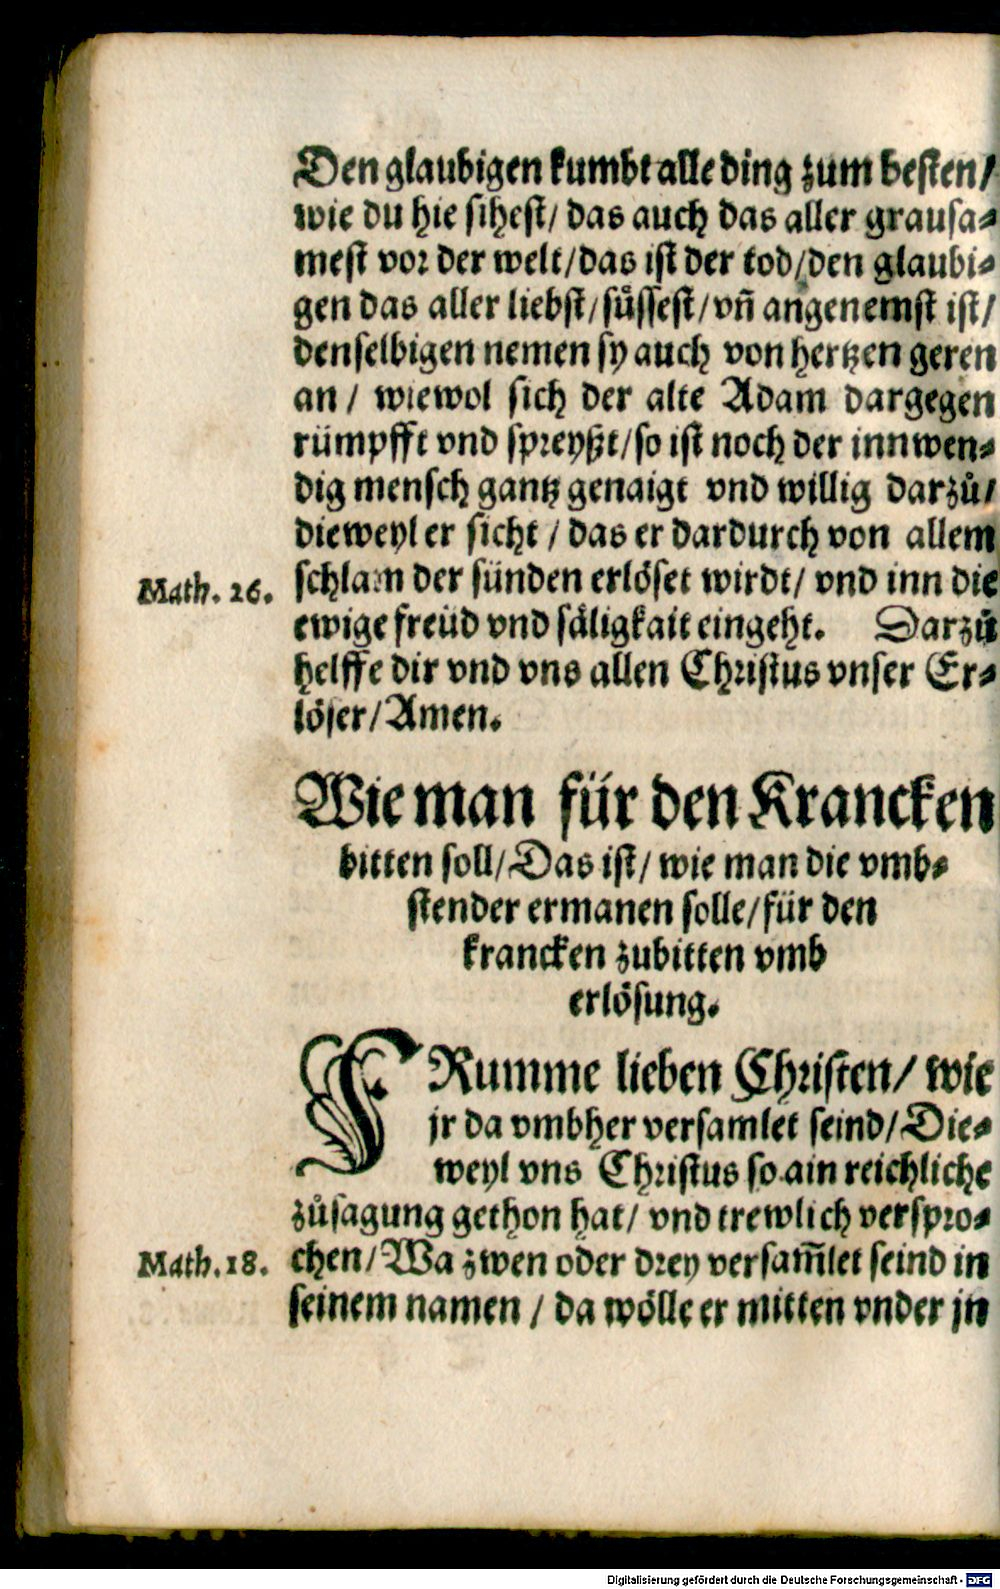 Den glaubigen kumbt alle ding zum besten/
wie du hie sihest/ das auch das aller grausa⸗
mest vor der welt/das ist der tod/den glaubi⸗
gen das aller liebst/süssest/vñ angenemst ist/
denselbigen nemen sy auch von hertzen geren
an / wiewol sich der alte Adam dargegen
rümpfft vnd spreyßt/so ist noch der innwen⸗
dig mensch gantz genaigt vnd willig darzů/
dieweyl er sicht / das er dardurch von allem
Math. 26. schlam der sünden erlöset wirdt/ vnd inn die
ewige freüd vnd säligkait eingeht. Darzů
helffe dir vnd vns allen Christus vnser Er⸗
löser/Amen.
Wie man für den Krancken
bitten soll/Das ist/ wie man die vmb⸗
stender ermanen solle/für den
krancken zubitten vmb
erlösung.
FRumme lieben Christen/ wie
jr da vmbher versamlet seind/Die⸗
weyl vns Christus so ain reichliche
zůsagung gethon hat/ vnd trewlich verspro⸗
Math. 18. chen/Wa zwen oder drey versam̃let seind in
seinem namen / da wölle er mitten vnder jn
Digitalisierung gefördert durch die Deutsche Forschungsgemeinschaft - DFG